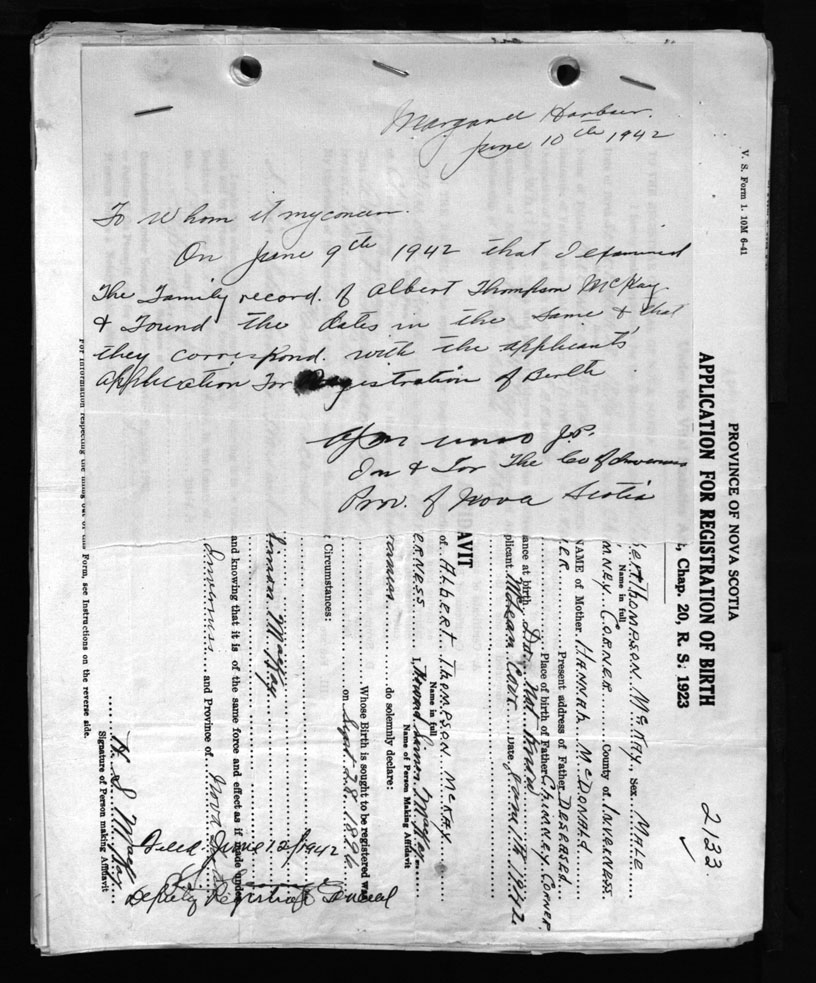 Margaree Harbour.
June 10th 1942
To Whom it myconcern.
On June 9th 1942 that I examined
The Family record. of Albert Thompson McKay.
& Found the dates in the same & that
they correspond. with the applicants'
application For Registration of Birth
J.P.
In & For The Co of Inverness
Prov. of Nova Scotia
V. S. Form 1. 10M 6-41
PROVINCE OF NOVA SCOTIA
APPLICATION FOR REGISTRATION OF BIRTH
, Chap. 20, R. S. 1923
2133
bert Thompson McKay. Sex. Male
Name in full
mney Corner County of Inverness
NAME of Mother Hannah McDonald
ER Present address of Father Deseased
Place of birth of Father Chimney Corner
ance at birth
plicant Date June 11th 1942
AVIT
of Albert Thompson McKay
Name in full
erness I,
Name of Person Making Affidavit
do solemnly declare:
Whose Birth is sought to be registered was
on Sept. 28. 1886
Circumstances:
and knowing that it is of the same force and effect as if made under
Inverness and Province of Nova
Signature of Person making Affidavit
For information respecting the filling out of this Form, see Instructions on the reverse side.
Filed June 12/1942
Deputy Registrar General